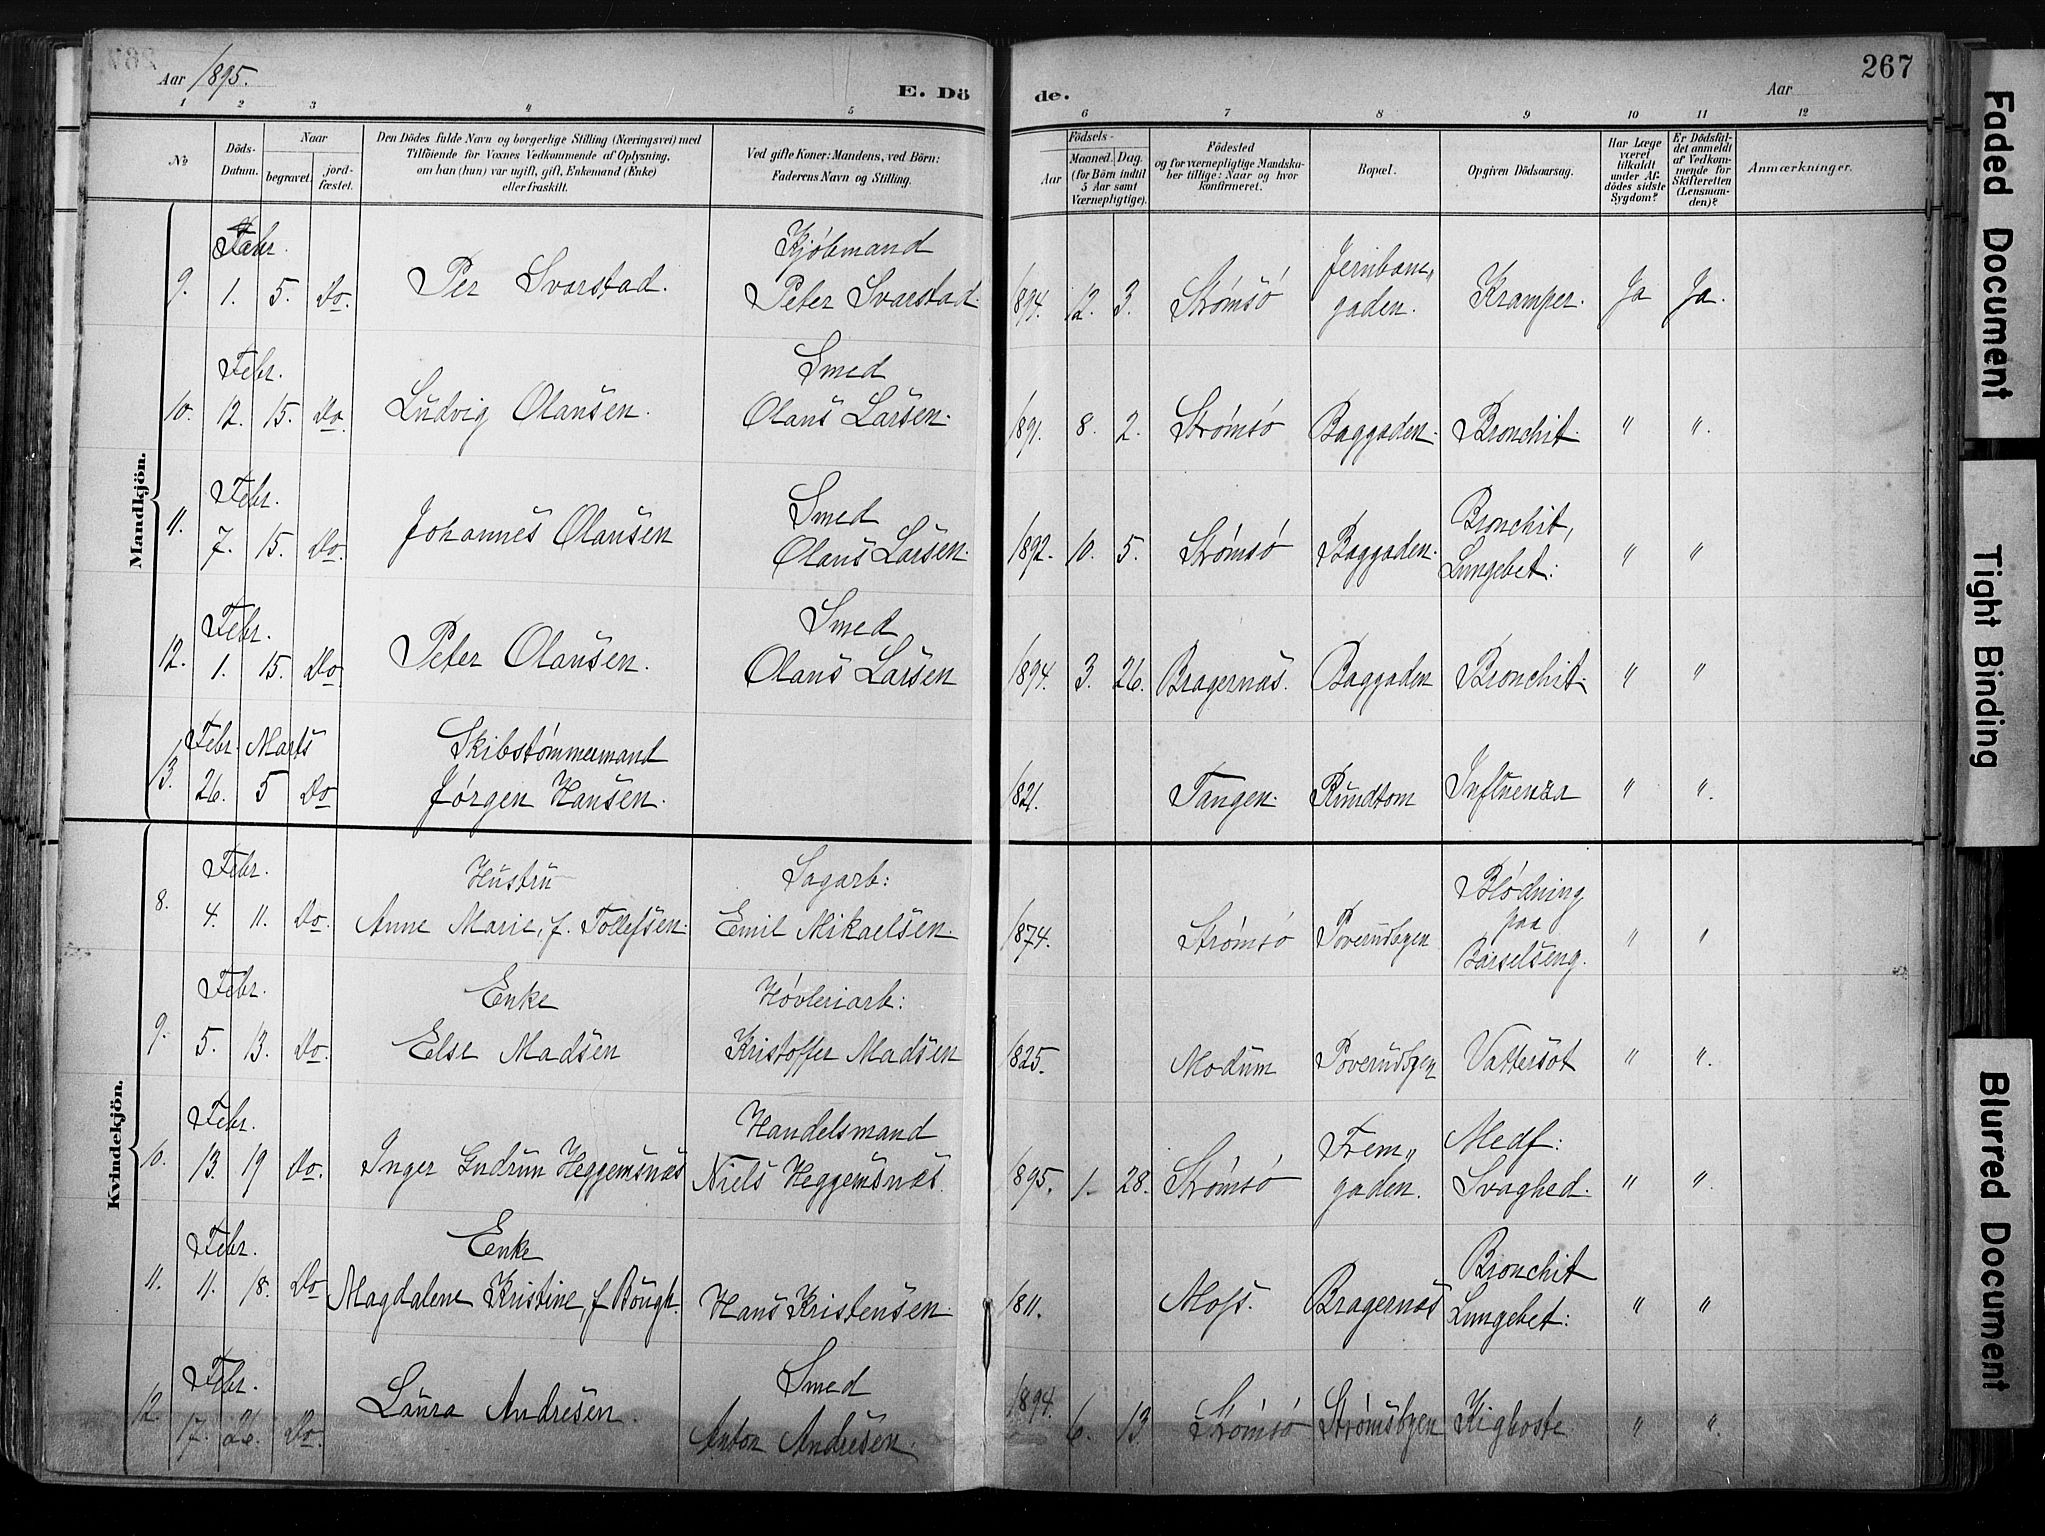 267
Aar 1895.
E. Dö de.
Aar
1 2 3 4 5 6 7 8 9 10 11 12
No
Döds-Datum.
Naar
begravet.
jord-fæstet.
Den Dödes fulde Navn og borgerlige Stilling (Næringsvei) med
Tilföiende for Voxnes Vedkommende af Oplysning,
om han (hun) var ugift, gift, Enkemand (Enke)
eller fraskilt.
Ved gifte Koner: Mandens, ved Börn:
Faderens Navn og Stilling.
Födsels-
Aar
Maaned. Dag.
(for Börn indtil
5 Aar samt
Værnepligtige).
Födested
og for værnepligtige Mandska-
ber tillige: Naar og hvor
konfirmeret.
Bopæl.
Opgiven Dödsaarsag.
Har Læge
været
tilkaldt
under Af-
dödes sidste
Sygdom?
Er Dödsfal-
det anmeldt
af Vedkom-
mende for
Skifteretten
(Lensman-
den)?
Anmærkninger.
Mandkjön.
Febr. Kjøbmand Jernbane„
9. 1. 5. Do. Per Svarstad. Peter Svarstad. 1894. 12. 3. Strømsø gaden. Kramper. Ja Ja.
Febr. Smed
10. 12. 15. Do. Ludvig Olausen. Olaus Larsen. 1891. 8. 2. Strømsø Baggaden. Bronchit. " ".
Febr. Smed Bronchit,
11. 7. 15. Do. Johannes Olausen Olaus Larsen. 1892. 10. 5. Strømsø Baggaden. Lungebet: " "
Febr. Smed
12. 1. 15. Do. Peter Olausen. Olaus Larsen 1894. 3. 26. Bragernæs. Baggaden Bronchit. " "
Febr. Marts Skibstømmermand
13. 26. 5 Do Jørgen Hansen. 1821. Tangen. Rundtom Influenza " ".
Kvindekjön.
Febr. Hustru Sagarb: Blødning paa
8. 4. 11. Do. Anne Marie, f. Tollefsen. Emil Mikaelsen. 1874. Strømsø Poverudbyen Barselseng. " "
Febr. Enke Høvleriarb:
9. 5. 13. Do. Else Madsen Kristoffer Madsen 1825. Modum Poverudbyen Vattersot " ".
Febr. Handelsmand Frem„ Medf:
10. 13. 19 Do. Inger Gudrun Heggemsnæs Niels Heggemsnæs. 1895. 1. 28. Strømsø gaden. Svaghed. " ".
Febr. Enke Bronchit
11. 11. 18. Do Magdalene Kristine, f Bough. Hans Kristensen. 1811. Moss. Bragernæs Lungebet: " "
Febr. Smed
12. 17. 26. Do. Laura Andresen. Anton Andresen. 1894. 6. 13 Strømsø Strømsbyen Kighoste " ".
Faded Document
Tight Binding
Blurred Document